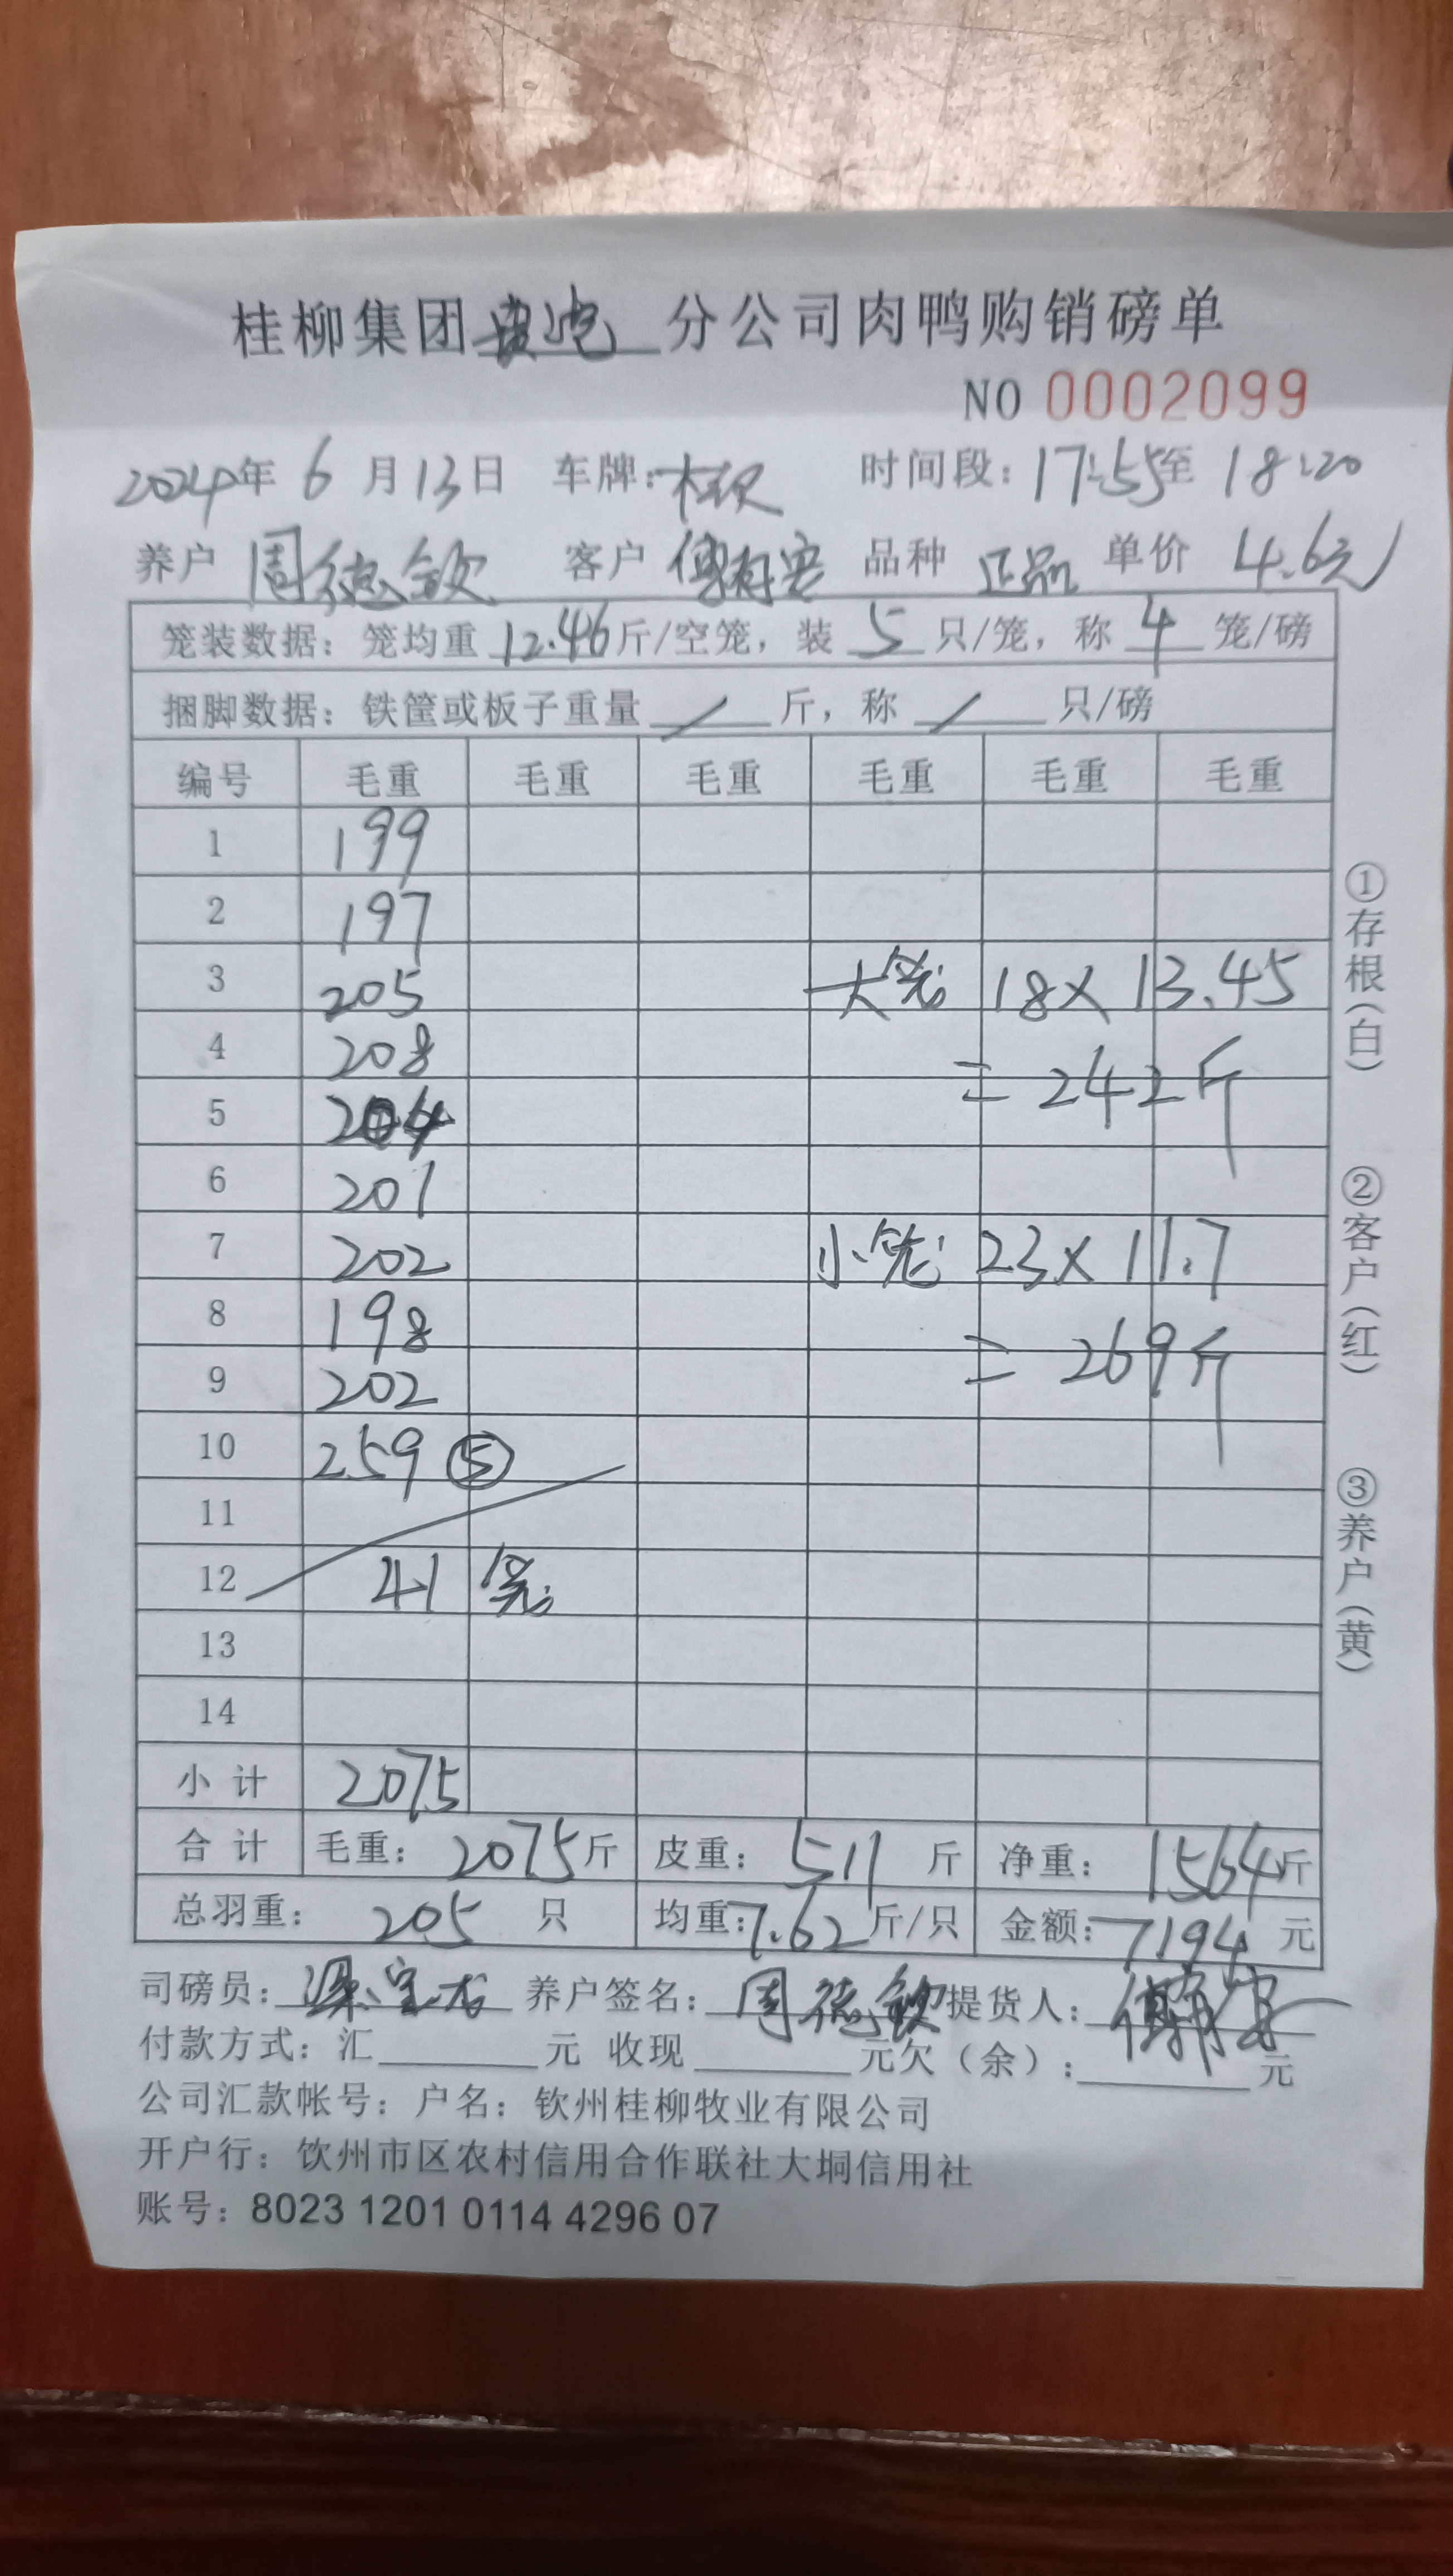 桂柳集团 分公司肉鸭购销磅单
NO 0002099
2024年 6 月 13日 车牌: 时间段: 17:55至 18:20
养户 周德钦 客户 品种 正品 单价 4.6元
笼装数据: 笼均重 12.46斤/空笼, 装 5 只/笼, 称 4 笼/磅
捆脚数据: 铁筐或板子重量 / 斤, 称 / 只/磅
编号 毛重 毛重 毛重 毛重 毛重 毛重
1 199
2 197
3 205 大笼 18×13.45
4 208 =242斤
5 204
6 201
7 202 小笼 23×11.7
8 198 =269斤
9 202
10 259 ⑤
11
12 41 笼
13
14
小 计 2075
合 计 毛重: 2075斤 皮重: 511 斤 净重: 1564斤
总羽重: 205 只 均重:7.62斤/只 金额:7194 元
司磅员: 养户签名: 周德钦 提货人:
付款方式: 汇 元 收现 元欠(余): 元
公司汇款帐号: 户名: 钦州桂柳牧业有限公司
开户行: 饮州市区农村信用合作联社大垌信用社
账号: 8023 1201 0114 4296 07
①存根(白)
②客户(红)
③养户(黄)